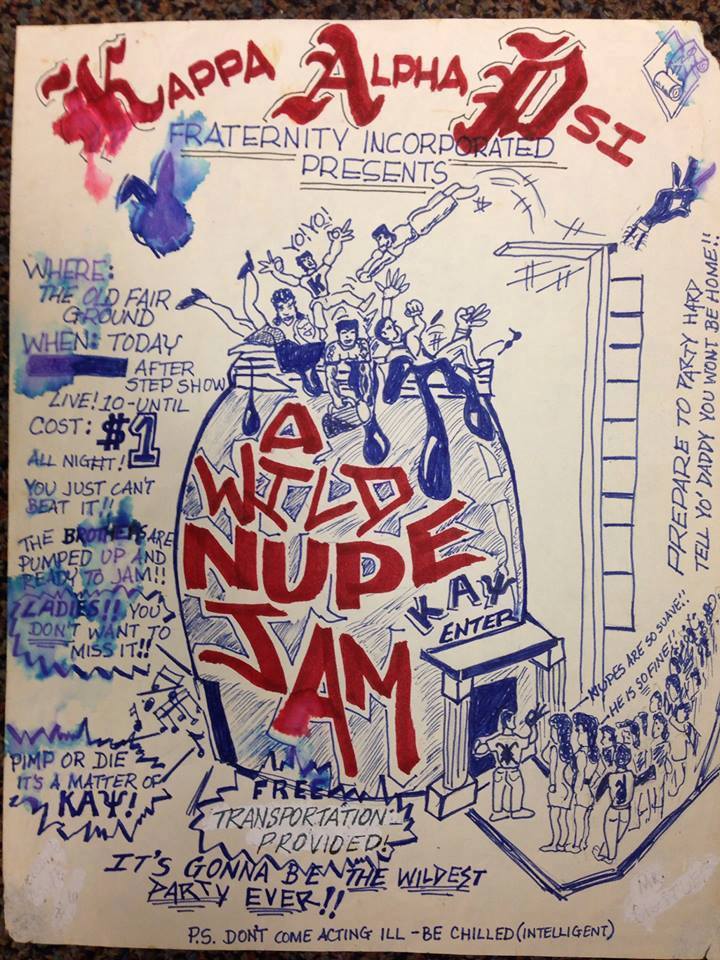 KAPPA ALPHA PSI
FRATERNITY INCORPORATED
PRESENTS
YO! YO!!
K
WHERE:
THE OLD FAIR
GROUND
WHEN: TODAY
AFTER
STEP SHOW
LIVE! 10-UNTIL
COST: $1
ALL NIGHT!
YOU JUST CAN'T
BEAT IT!!
THE BROTHERS ARE
PUMPED UP AND
READY TO JAM!!
LADIES!! YOU
DON'T WANT TO
MISS IT!!
PIMP OR DIE
IT'S A MATTER OF
KAΨ!
A
WILD
NUPE
JAM
KAΨ
ENTER
NUPES ARE SO SUAVE!!
HE IS SO FINE!!
PREPARE TO PARTY HARD
TELL YO' DADDY YOU WONT BE HOME!!
FREE
TRANSPORTATION
PROVIDED!
IT'S GONNA BE THE WILDEST
PARTY EVER!!
P.S. DON'T COME ACTING ILL - BE CHILLED (INTELLIGENT)